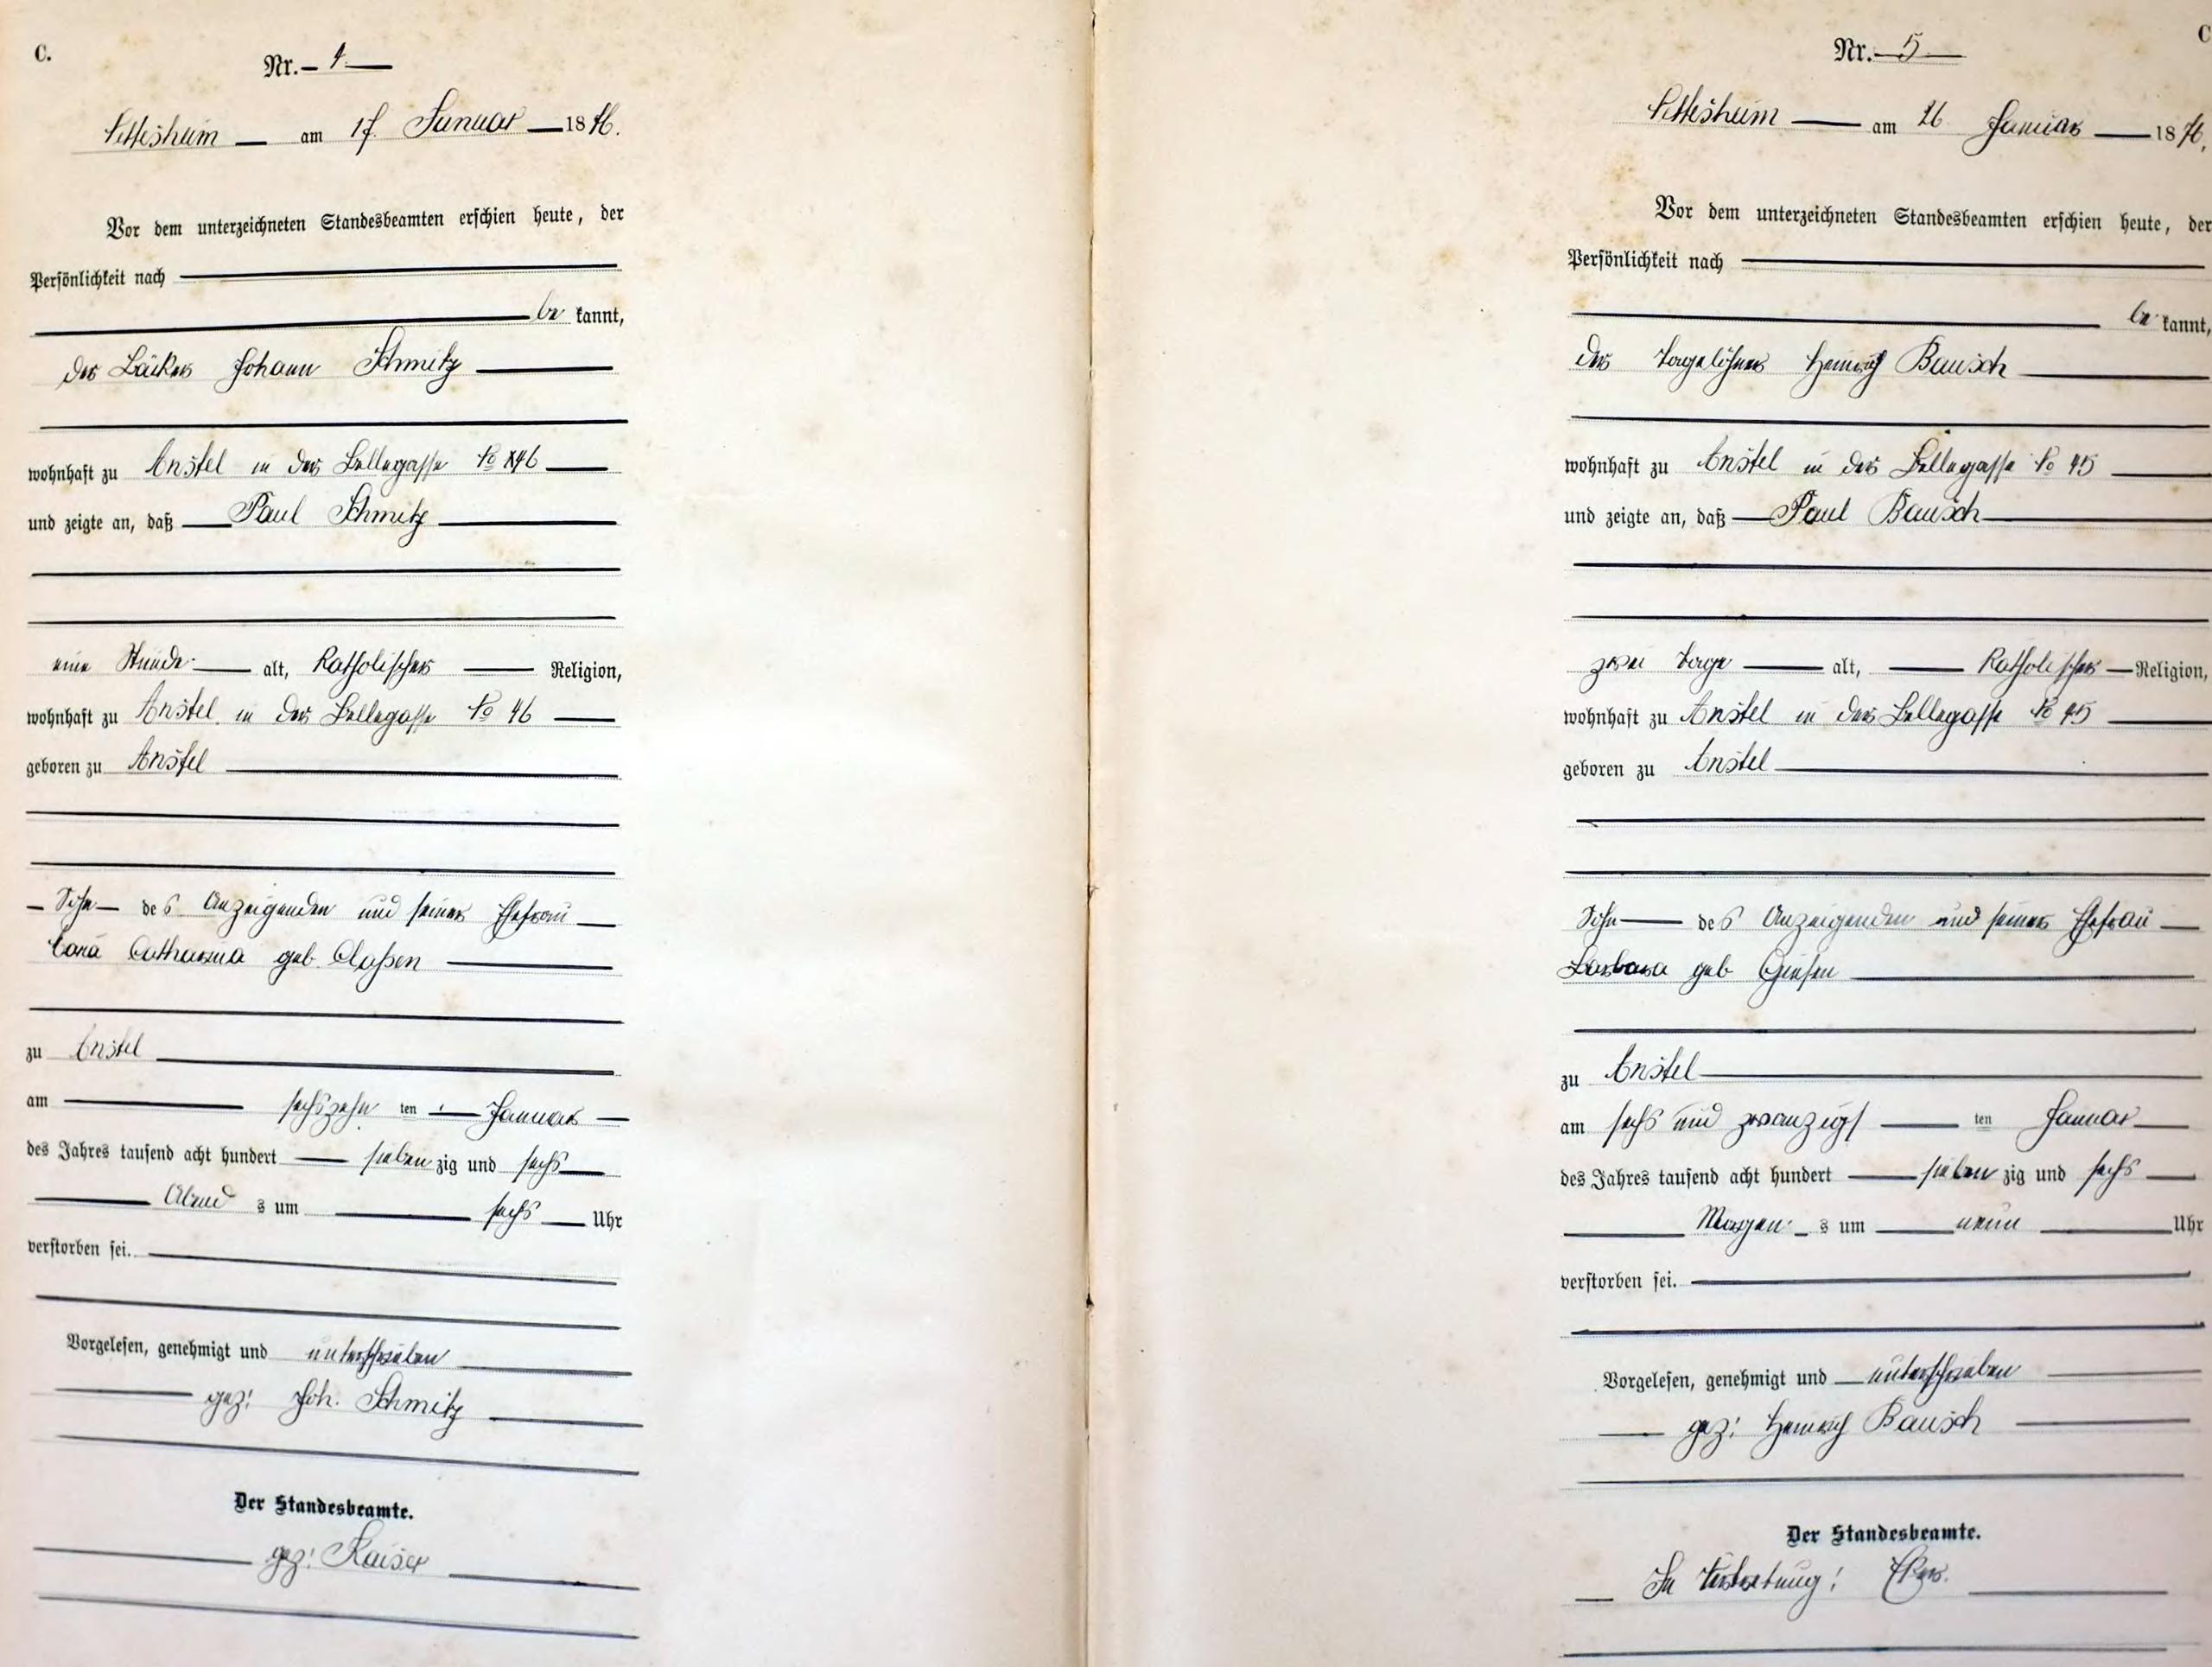 C.
Nr. 4
am 17. Januar 1876.
Vor dem unterzeichneten Standesbeamten erschien heute, der
Persönlichkeit nach
be kannt,
der Bäcker Johann Schmitz
wohnhaft zu Anstel in der Bellegasse No 46
und zeigte an, daß Paul Schmitz
eine Stunde alt, Katholischer Religion,
wohnhaft zu Anstel in der Bellegasse No 46
geboren zu Anstel
Sohn des Anzeigenden und seiner Ehefrau
Catharina geb. Claßen
zu Anstel
am sechszehn ten Januar
des Jahres tausend acht hundert sieben zig und sechs
Abend s um sechs Uhr
verstorben sei.
Vorgelesen, genehmigt und unterschrieben
gez: Joh. Schmitz
Der Standesbeamte.
gez: Kaiser
C
Nr. 5
am 26 Januar 1876.
Vor dem unterzeichneten Standesbeamten erschien heute, der
Persönlichkeit nach
be kannt,
der Tagelöhner Heinrich Bausch
wohnhaft zu Anstel in der Bellegasse No 45
und zeigte an, daß Paul Bausch
zwei Tage alt, Katholischer Religion,
wohnhaft zu Anstel in der Bellegasse No 45
geboren zu Anstel
Sohn des Anzeigenden und seiner Ehefrau
Barbara geb Giesen
zu Anstel
am sechs und zwanzigs ten Januar
des Jahres tausend acht hundert sieben zig und sechs
Morgen s um neun Uhr
verstorben sei.
Vorgelesen, genehmigt und unterschrieben
gez: Heinrich Bausch
Der Standesbeamte.
In Vertretung!